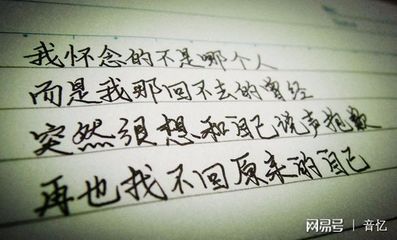 我怀念的不是哪个人
而是我那回不去的曾经
突然很想和自己说声抱歉
再也找不回原来的自己
网易号 | 音忆